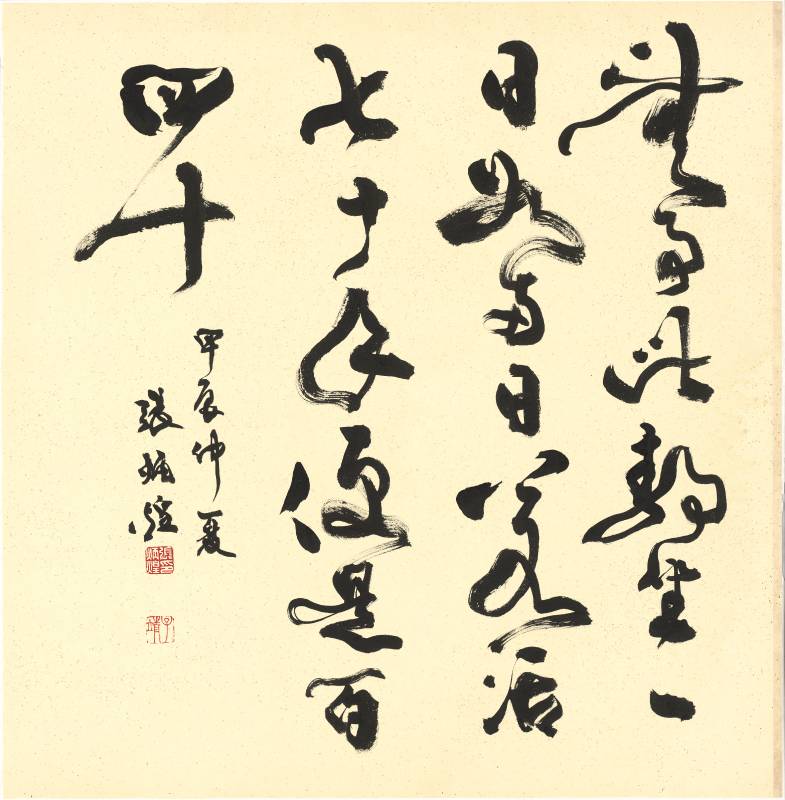 無事此靜坐一
日如兩日若活
七十年便是百
四十
甲辰仲夏
張炳煌
張炳煌印